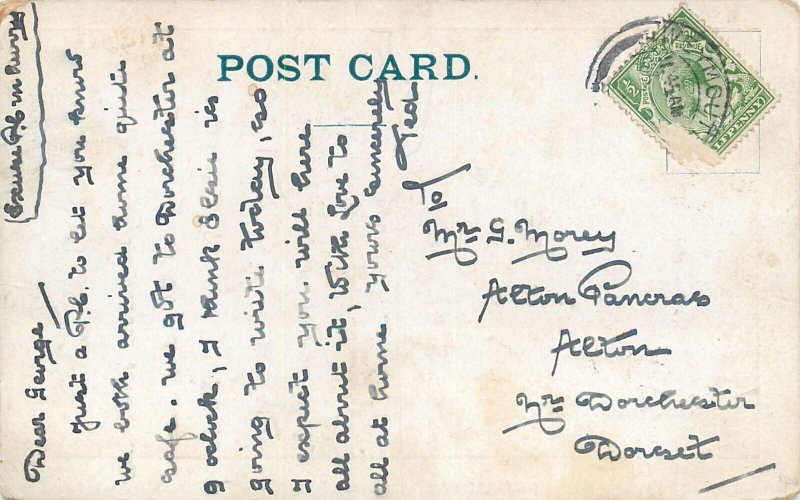 POST CARD.
Excuse P.C. in hurry
Dear George
Just a P.C. to let you know
we both arrived home quite
safe. we got to Dorchester at
9 oclock, I think Elsie is
going to write today, so
I expect you will here
all about it, With love to
all at home yours sincerely
Ted
To
Mr. G. Morey
Alton Pancras
Alton
Nr. Dorchester
Dorset
POSTAGE
REVENUE
HALFPENNY